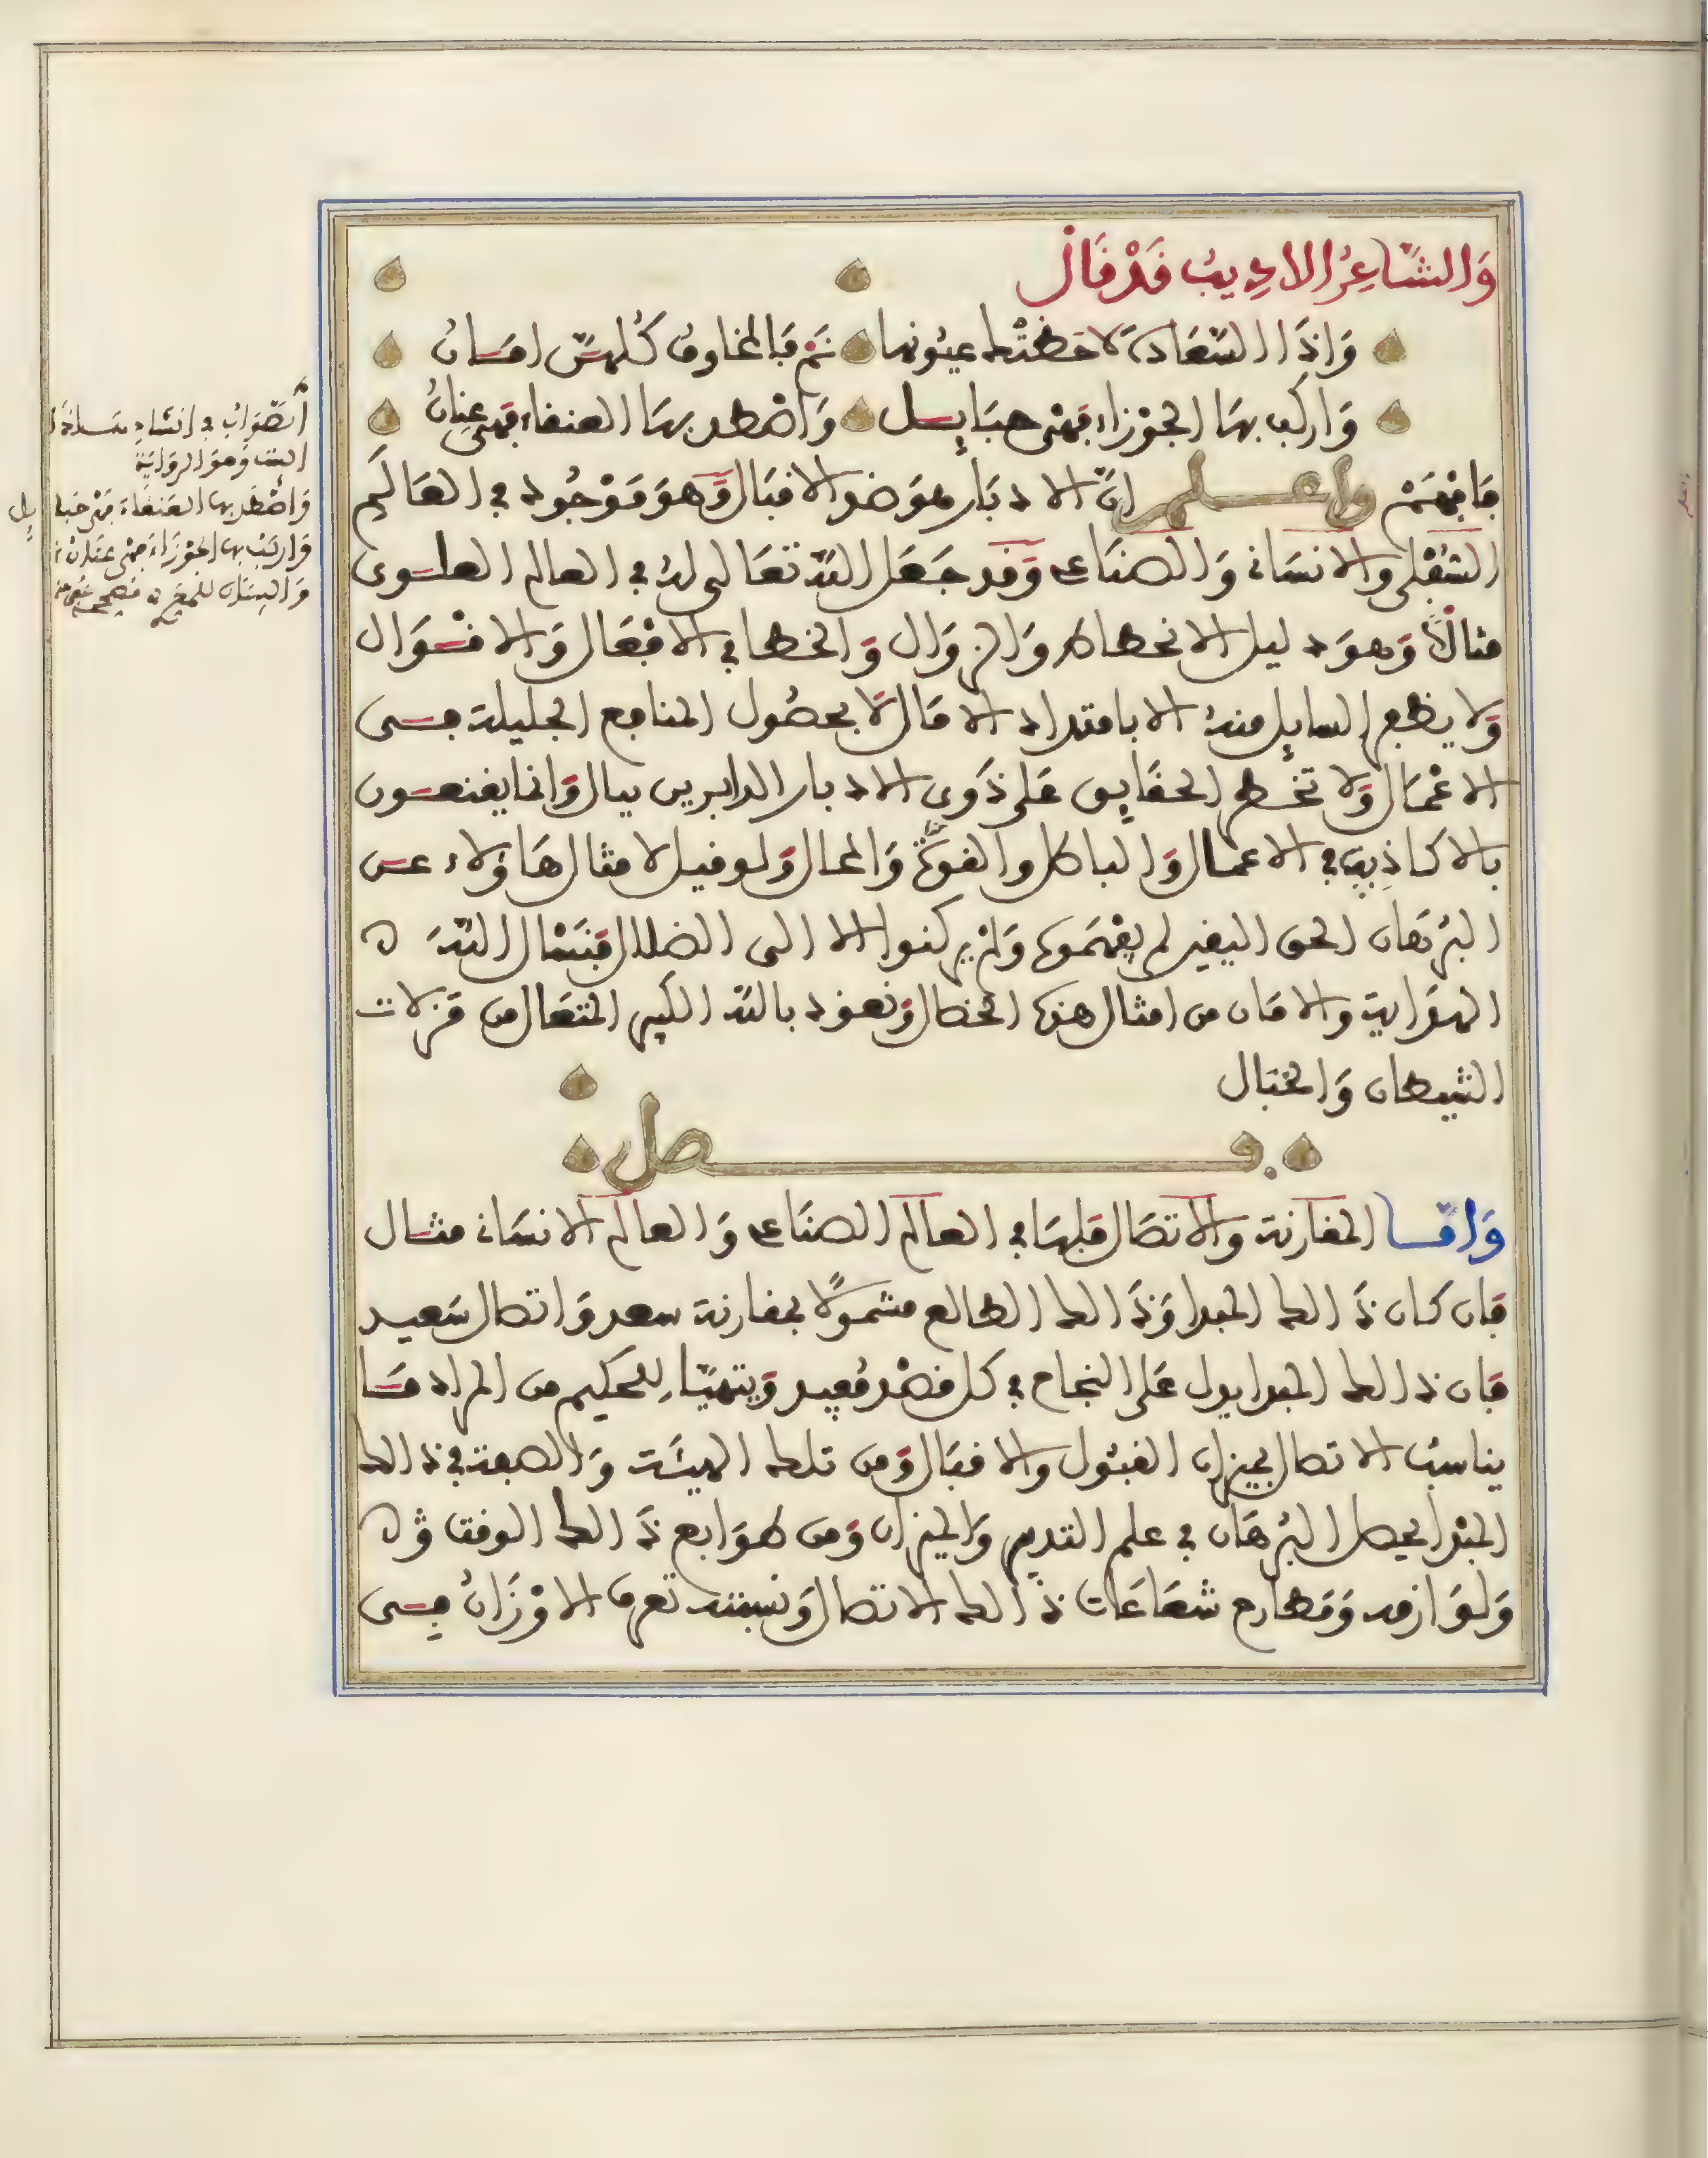 وَالشَّاعِرُ الاديبُ قَدْ قَالْ
وَاِذَا السَّعَادَة لاحَظَتْك عيُونها نَمْ فَالمخاوفُ كُلهنّ امَانُ
وَاركب بهَا الجَوْزاء فَهْىَ حبَايل وَاصْطد بهَا العنقاء فَهْىَ عِنَانُ
فَافْهَمْ واعلم انّ الادبَار هوَ ضد الاقبَال وَهوَ مَوْجُود في العَالَم
السّفْلي والانسَاني وَالصنَاعي وَقد جَعَل اللّه تعَالى لهُ في العالم العلوى
مثالًا وَهوَ دليل الانحطاط وَالزوَال وَالخطا في الافعَال وَالاقوَال
وَلا يظفر السايل منهُ الا بامتداد الامَال لا بحصُول المنافع الجليلة في
الاعْمَال وَلا تخطر الحقَايق عَلى ذَوى الادبار الدابرين ببال وَانما يقنعون
بالاكاذِيب في الاعمال وَالباطل والقوة وَالمحال وَلو قيل لامثال هَاؤلاء عن
البُرهَان الحق اليقين لم يفْهَموه وَلمْ يركنوا الا الى الضلال فنَسْال اللّهَ
الهدَاية والامَان من امثال هذه الخصال وَنعوذ باللّه الكبير المتعَال من مَزلات
الشيطان وَالخبَال
فصل
وَامّا المقارَنة والاتصَال فلهَا في العالم الصنَاعي وَالعالم الانسَاني مثال
فان كان ذَالك المبدا وَذَالك الطالع مشمولًا بمقارنة سعد وَاتصال سَعيد
فان ذالك المبدا يدل عَلى النجاح في كل قصْد مُفيد وَيتهيّا للحكيم من المراد مَا
يناسبُ الاتصال بميزان القبُول والاقبَال وَمن تلك الهيئَة وَالصفة في ذالك
المبْدا يحصل البُرهَان في علم التدبير وَالميزان وَمن طوَابع ذَالك الوقت وَ
وَلوَازمه وَمَطارح شعَاعَات ذَالك الاتصال وَنسبته تعرف الاوْزَانُ في
اَلصَّوَابُ في اِنشاد
البيت وَهوَ الروَايَة
وَاصْطَد بها العَنقاءَ فَهْىَ حَبَايل
وَاركَبْ بها الجَوْزَاءَ فَهْىَ عِنَانُ
وَالبيتان للمعري